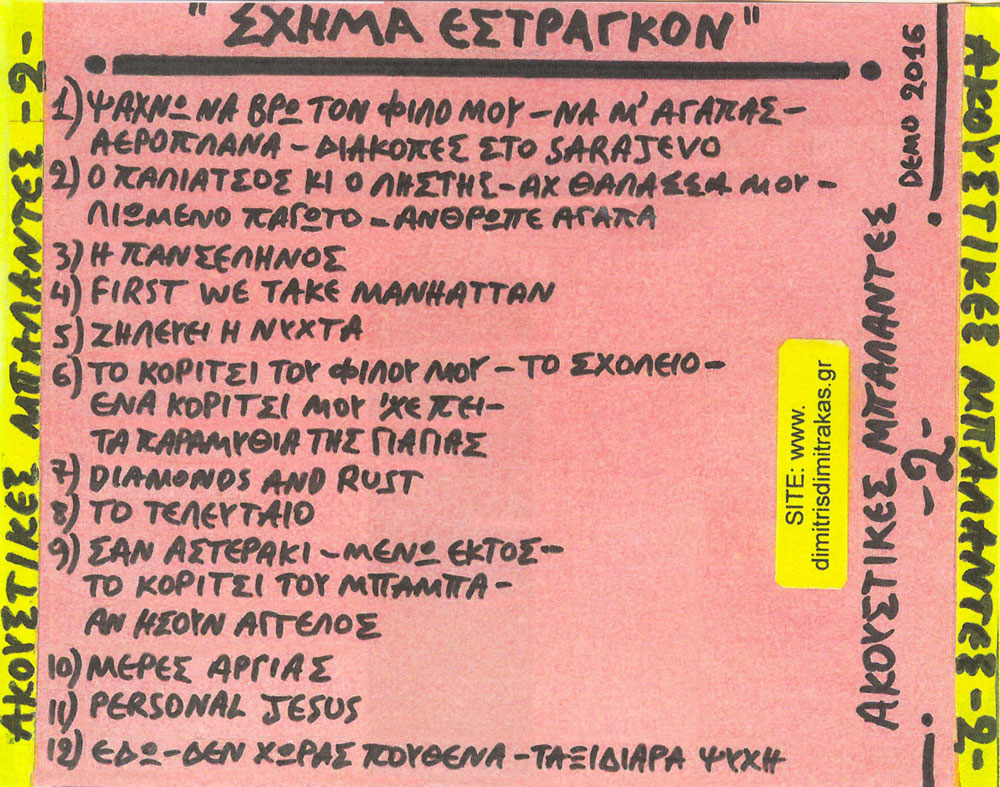 " ΣΧΗΜΑ ΕΣΤΡΑΓΚΟΝ"
1) ΨΑΧΝΩ ΝΑ ΒΡΩ ΤΟΝ ΦΙΛΟ ΜΟΥ - ΝΑ Μ' ΑΓΑΠΑΣ -
ΑΕΡΟΠΛΑΝΑ - ΔΙΑΚΟΠΕΣ ΣΤΟ SARAJEVO
2) Ο ΠΑΛΙΑΤΣΟΣ ΚΙ Ο ΛΗΣΤΗΣ - ΑΧ ΘΑΛΑΣΣΑ ΜΟΥ -
ΛΙΩΜΕΝΟ ΠΑΓΩΤΟ - ΑΝΘΡΩΠΕ ΑΓΑΠΑ
3) Η ΠΑΝΣΕΛΗΝΟΣ
4) FIRST WE TAKE MANHATTAN
5) ΖΗΛΕΥΕΙ Η ΝΥΧΤΑ
6) ΤΟ ΚΟΡΙΤΣΙ ΤΟΥ ΦΙΛΟΥ ΜΟΥ - ΤΟ ΣΧΟΛΕΙΟ -
ΕΝΑ ΚΟΡΙΤΣΙ ΜΟΥ 'ΧΕ ΠΕΙ -
ΤΑ ΠΑΡΑΜΥΘΙΑ ΤΗΣ ΓΙΑΓΙΑΣ
7) DIAMONDS AND RUST
8) ΤΟ ΤΕΛΕΥΤΑΙΟ
9) ΣΑΝ ΑΣΤΕΡΑΚΙ - ΜΕΝΩ ΕΚΤΟΣ -
ΤΟ ΚΟΡΙΤΣΙ ΤΟΥ ΜΠΑΜΠΑ -
ΑΝ ΗΣΟΥΝ ΑΓΓΕΛΟΣ
10) ΜΕΡΕΣ ΑΡΓΙΑΣ
11) PERSONAL JESUS
12) ΕΔΩ - ΔΕΝ ΧΩΡΑΣ ΠΟΥΘΕΝΑ - ΤΑΞΙΔΙΑΡΑ ΨΥΧΗ
ΑΚΟΥΣΤΙΚΕΣ ΜΠΑΛΑΝΤΕΣ -2-
SITE: www.
dimitrisdimitrakas.gr
ΑΚΟΥΣΤΙΚΕΣ ΜΠΑΛΑΝΤΕΣ
-2-
DEMO 2016
ΑΚΟΥΣΤΙΚΕΣ ΜΠΑΛΑΝΤΕΣ -2-